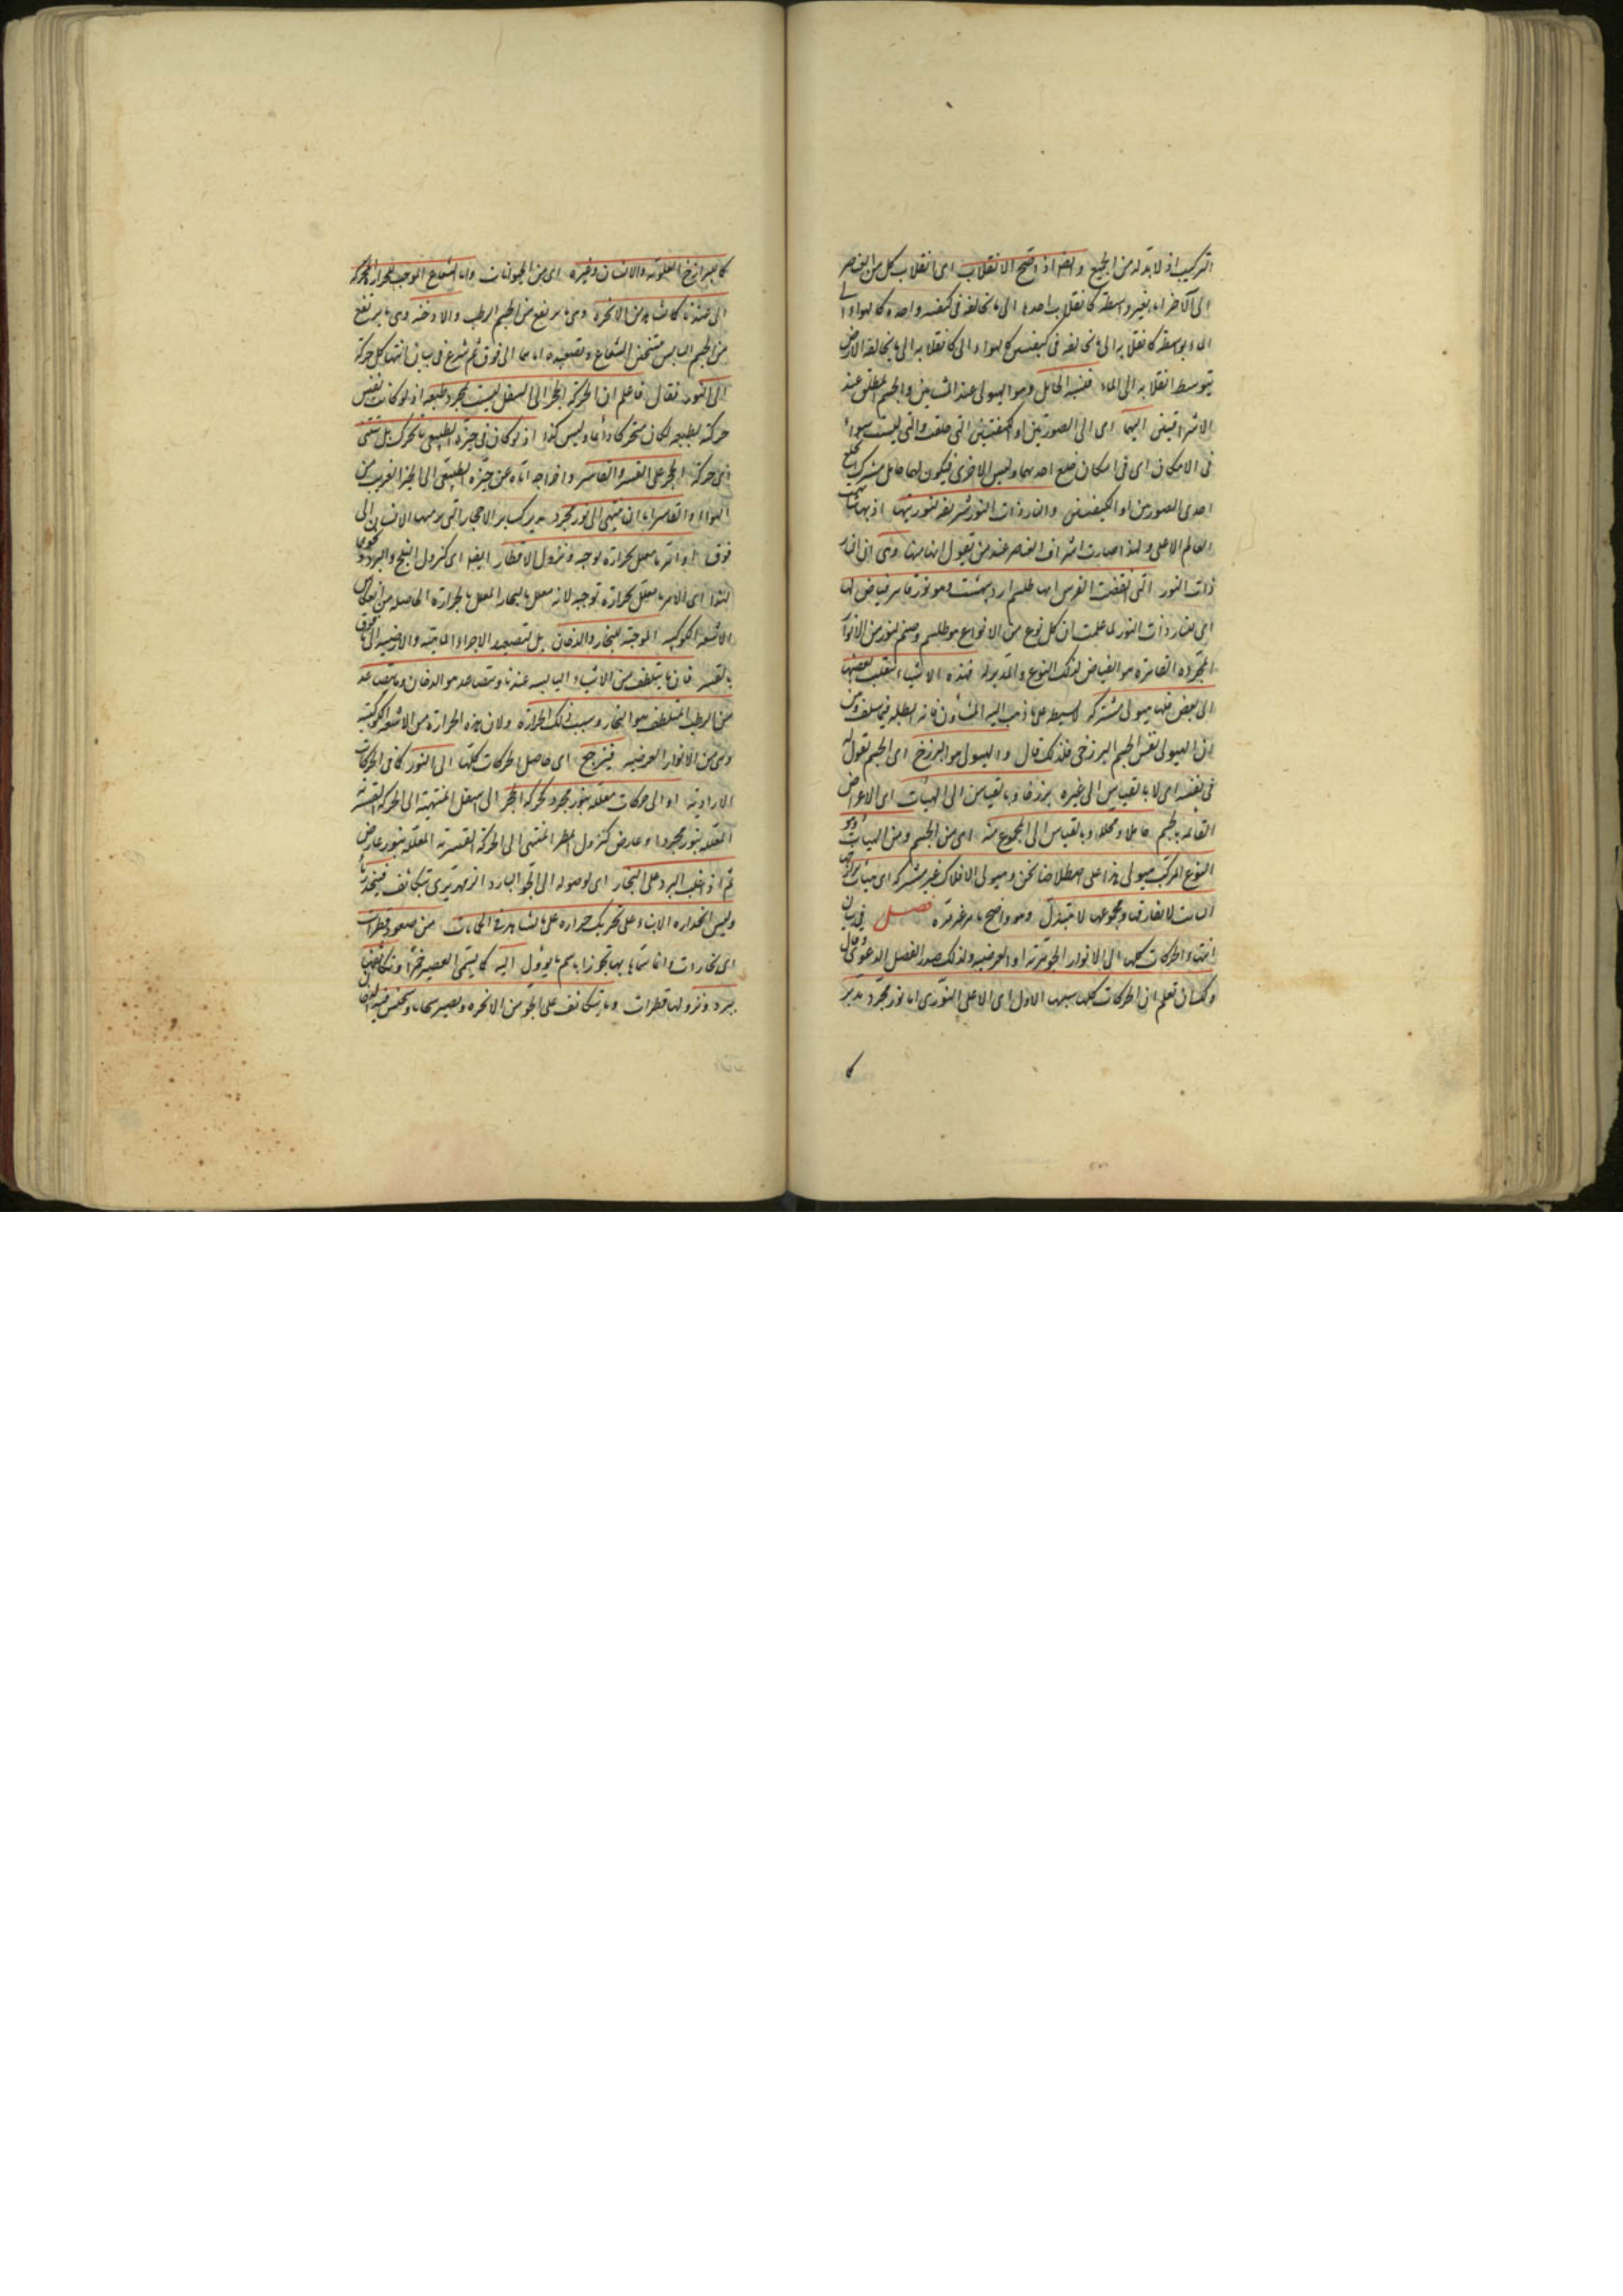 التركيب اذ لا بد له من الجميع وايضا اذا صح الانقلاب اى انقلاب كل من العناصر
الى الآخر اما بغير واسطة كانقلاب احدها الى ما يخالفه فى كيفية واحدة كالهواء الى
الماء او بواسطة كانقلابه الى ما يخالفه فى كيفيتين كالهواء الى كانقلابه الى ما يخالفه الارض
بتوسط انقلابه الى الماء فنسبة الحامل وهو الهيولى عند المشائين والجسم المطلق عند
الاشراقيين اليهما اى الى الصورتين او الكيفيتين التى خلعت والتى لبست سواء
فى الامكان اى فى امكان خلع احديهما ولبس الاخرى فيكون لها حامل مشترك يخلع
احدى الصورتين او الكيفيتين والنار ذات النور شريفة لنوريتها اذ بها شابهت
العالم الاعلى ولهذا صارت اشرف العناصر عند من يقول انها منها وهى اى النار
ذات النور التى اتفقت الفرس انها طلسم ارديبهشت وهو نور قاهر فياض لها
اى للنار ذات النور لما علمت ان كل نوع من الانواع هو طلسم وصنم لنور من الانوار
المجردة القاهرة هو الفياض لذلك النوع والمدبر له فهذه الاشياء ينقلب بعضها
الى بعض فلها هيولى مشتركة لا بسيطة على ما ذهب اليه المشاؤن فانه ابطله فيما سلف وبين
ان الهيولى نفس الجسم البرزخى فلذلك قال والهيولى هو البرزخ اى الجسم نقول له
فى نفسه اى لا بالقياس الى غيره برزخا وبالقياس الى الهيئات اى الاعراض
القائمة بالجسم حاملا ومحلا وبالقياس الى المجموع منه اى من الجسم ومن الهيئات وهو
النوع المركب هيولى هذا على اصطلاحنا نحن وهيولى الافلاك غير مشتركة اى هيئات برازخها
الثابتة لا تفارق ومجموعها لا يتبدل وهو واضح مما مر غير مرة فصل فى بيان
انتهاء الحركات كلها الى الانوار الجوهرية او العرضية ولذلك صدر الفصل بالدعوى وقال
ولك ان تعلم ان الحركات كلها سببها الاول اى الاعلى النورى اما نور مجرد مدبر
كا
كما للبرازخ العلوية والانسان وغيره اى من الحيوانات واما الشعاع الموجب للحرارة المحركة
الى عندنا كما يشاهد من الابخرة وهى ما يرتفع من الجسم الرطب والادخنة وهى ما يرتفع
من الجسم اليابس بتسخين الشعاع وتصعيده اياهما الى فوق ثم شرع فى بيان انتهاء كل حركة
الى النور فقال فاعلم ان الحركة الحجر الى السفل ليست بمجرد طبعه اذ لو كانت نفس
حركته بطبعه لكان متحركا دائما وليس كذا اذ لو كان فى حيزه الطبيعى ما تحرك بل تبتنى
اى حركة الحجر على القسر والقاسر واخراجه اياه عن حيزه الطبيعى الى الحيز الغريب من
الهواء والقاسر اما ان ينتهى الى نور مجرد مدبر كسائر الاحجار التى يرميها الانسان الى
فوق او امر ما معلل بحرارة توجبه ونزول الامطار ايضا اى كنزول الثلج والبرد ونحوهما
لهذا اى لامر ما معلل بحرارة توجبه لانه معلل بالبخار المعلل بالحرارة الحاصلة من انعكاس
الاشعة الكوكبية الموجبة للبخار والدخان بل لتصعيد الاجزاء المائية والارضية الى فوق
بالقسر فان ما يتلطف من الاشياء اليابسة عندنا ويتصاعد هو الدخان وما يتصاعد
من الرطب المتلطف هو البخار وسبب ذلك الحرارة ولان هذه الحرارة من الاشعة الكوكبية
وهى من الانوار العرضية فيرجع اى حاصل الحركات كلها الى النور كما فى الحركات
الارادية او الى حركات معللة بنور مجرد كحركة الحجر الى اسفل المنتهية الى الحركة القسرية
المعللة بنور مجرد او عارض كنزول المطر المنتهى الى الحركة القسرية المعللة بنور عارض
ثم اذا غلب البرد على البخار اى لوصوله الى الجو البارد الزمهريرى تتكاثف فينحدر ماء
وليس انحداره الا بناء على تحريك حرارة على ما يشاهد فى الحمامات من صعود قطرات
اى بخارات وانما سماها بها تجوزا باسم ما يؤول اليه كما يسمى العصير خمرا وتكاثفها
ببرد ونزولها قطرات وما يتكاثف على الجو من الابخرة ويصير سحابا ويحتبس فيه الدخان